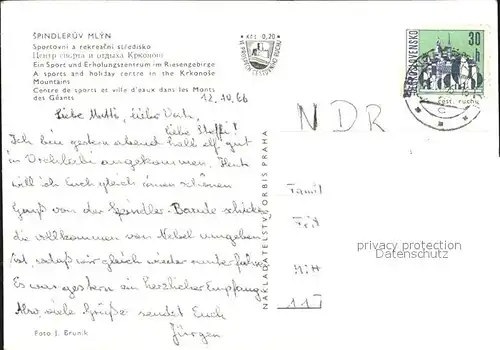 ŠPINDLERŮV MLÝN
Sportovní a rekreační středisko
Центр спорта и отдыха Крконоше
Ein Sport und Erholungszentrum im Riesengebirge
A sports and holiday centre in the Krkonoše
Mountains
Centre de sports et ville d'eaux dans les Monts
des Géants
Kčs 0,20
ČESKOSLOVENSKO
30
h
12.10.66
NDR
Liebe Mutti, lieber Vati,
liebe Steffi!
Ich bin gestern abend halb elf gut
in Vrchlabi angekommen. Heute
will ich Euch gleich einen schönen
Gruß von der Spindler-Baude schicken,
die vollkommen von Nebel umgeben
ist, sodaß wir gleich wieder runterfahren.
Es war gestern ein herzlicher Empfang.
Also viele Grüße sendet Euch
Jürgen
Foto J. Brunik
NAKLADATELSTVÍ ORBIS PRAHA
Famil
Mitt
117
privacy protection
Datenschutz